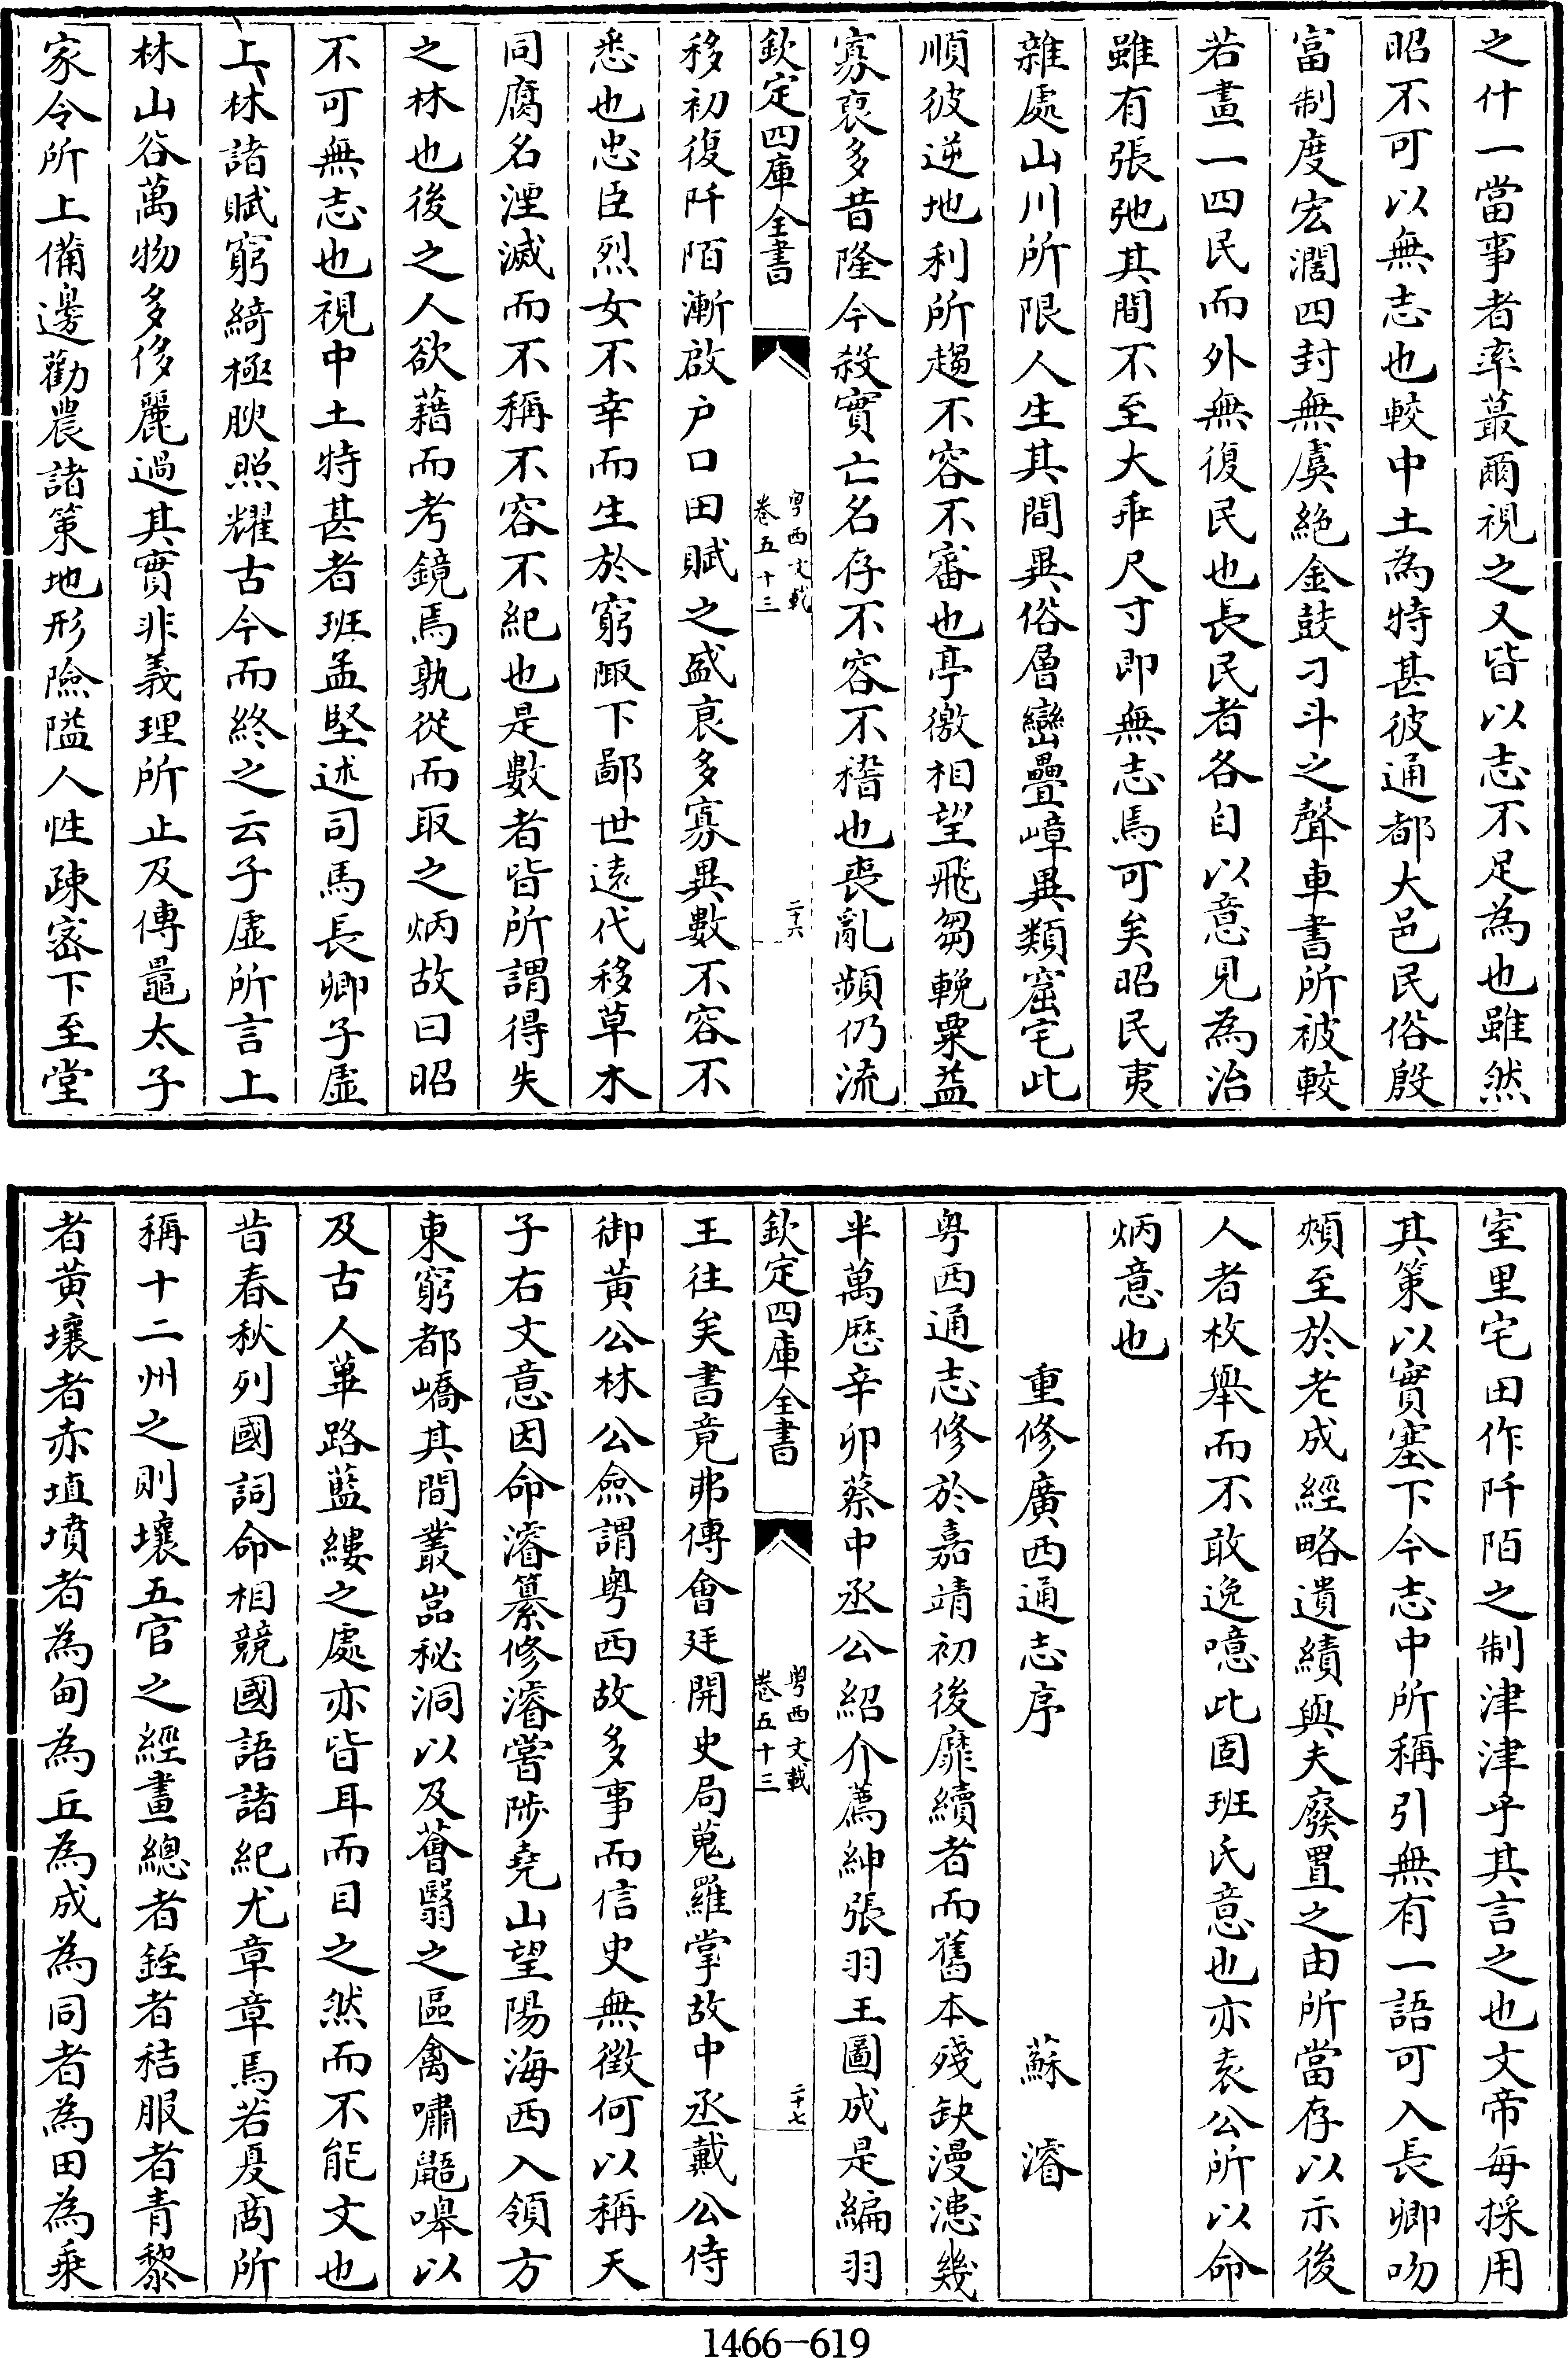 之什一當事者率蕞爾視之又皆以志不足為也雖然
昭不可以無志也較中土為特甚彼通都大邑民俗殷
富制度宏濶四封無虞絶金鼓刁斗之聲車書所被較
若畫一四民而外無復民也長民者各自以意見為治
雖有張弛其間不至大乖尺寸即無志焉可矣昭民夷
雜處山川所限人生其間異俗層巒疊嶂異類窟宅此
順彼逆地利所趨不容不審也亭徼相望飛芻輓粟益
寡裒多昔隆今殺實亡名存不容不稽也喪亂頻仍流
欽定四庫全書
粤西文載
卷五十三
二十六
移初復阡陌漸啟户口田賦之盛衰多寡異數不容不
悉也忠臣烈女不幸而生於窮陬下鄙世遠代移草木
同腐名湮滅而不稱不容不紀也是數者皆所謂得失
之林也後之人欲藉而考鏡焉孰從而取之炳故曰昭
不可無志也視中土特甚者班孟堅述司馬長卿子虛
上林諸賦窮綺極腴照耀古今而終之云子虛所言上
林山谷萬物多侈麗過其實非義理所止及傳鼂太子
家令所上備邊勸農諸策地形險隘人性疎宻下至堂
室里宅田作阡陌之制津津乎其言之也文帝每採用
其策以實塞下今志中所稱引無有一語可入長卿吻
頰至於老成經略遺績與夫廢置之由所當存以示後
人者枚舉而不敢逸噫此固班氏意也亦袁公所以命
炳意也
重修廣西通志序
蘇濬
粤西通志修於嘉靖初後靡續者而舊本殘缺漫漶幾
半萬歴辛卯蔡中丞公紹介薦紳張羽王圖成是編羽
欽定四庫全書
粤西文載
卷五十三
二十七
王往矣書竟弗傳會廷開史局蒐羅掌故中丞戴公侍
御黄公林公僉謂粤西故多事而信史無徵何以稱天
子右文意因命濬纂修濬嘗陟堯山望陽海西入領方
東窮都嶠其間叢嵓秘洞以及薈翳之區禽嘯鼯嘷以
及古人蓽路藍縷之處亦皆耳而目之然而不能文也
昔春秋列國詞命相競國語諸紀尤章章焉若夏商所
稱十二州之則壤五官之經畫總者銍者秸服者青黎
者黄壤者赤埴墳者為甸為丘為成為同者為田為乗
1466-619